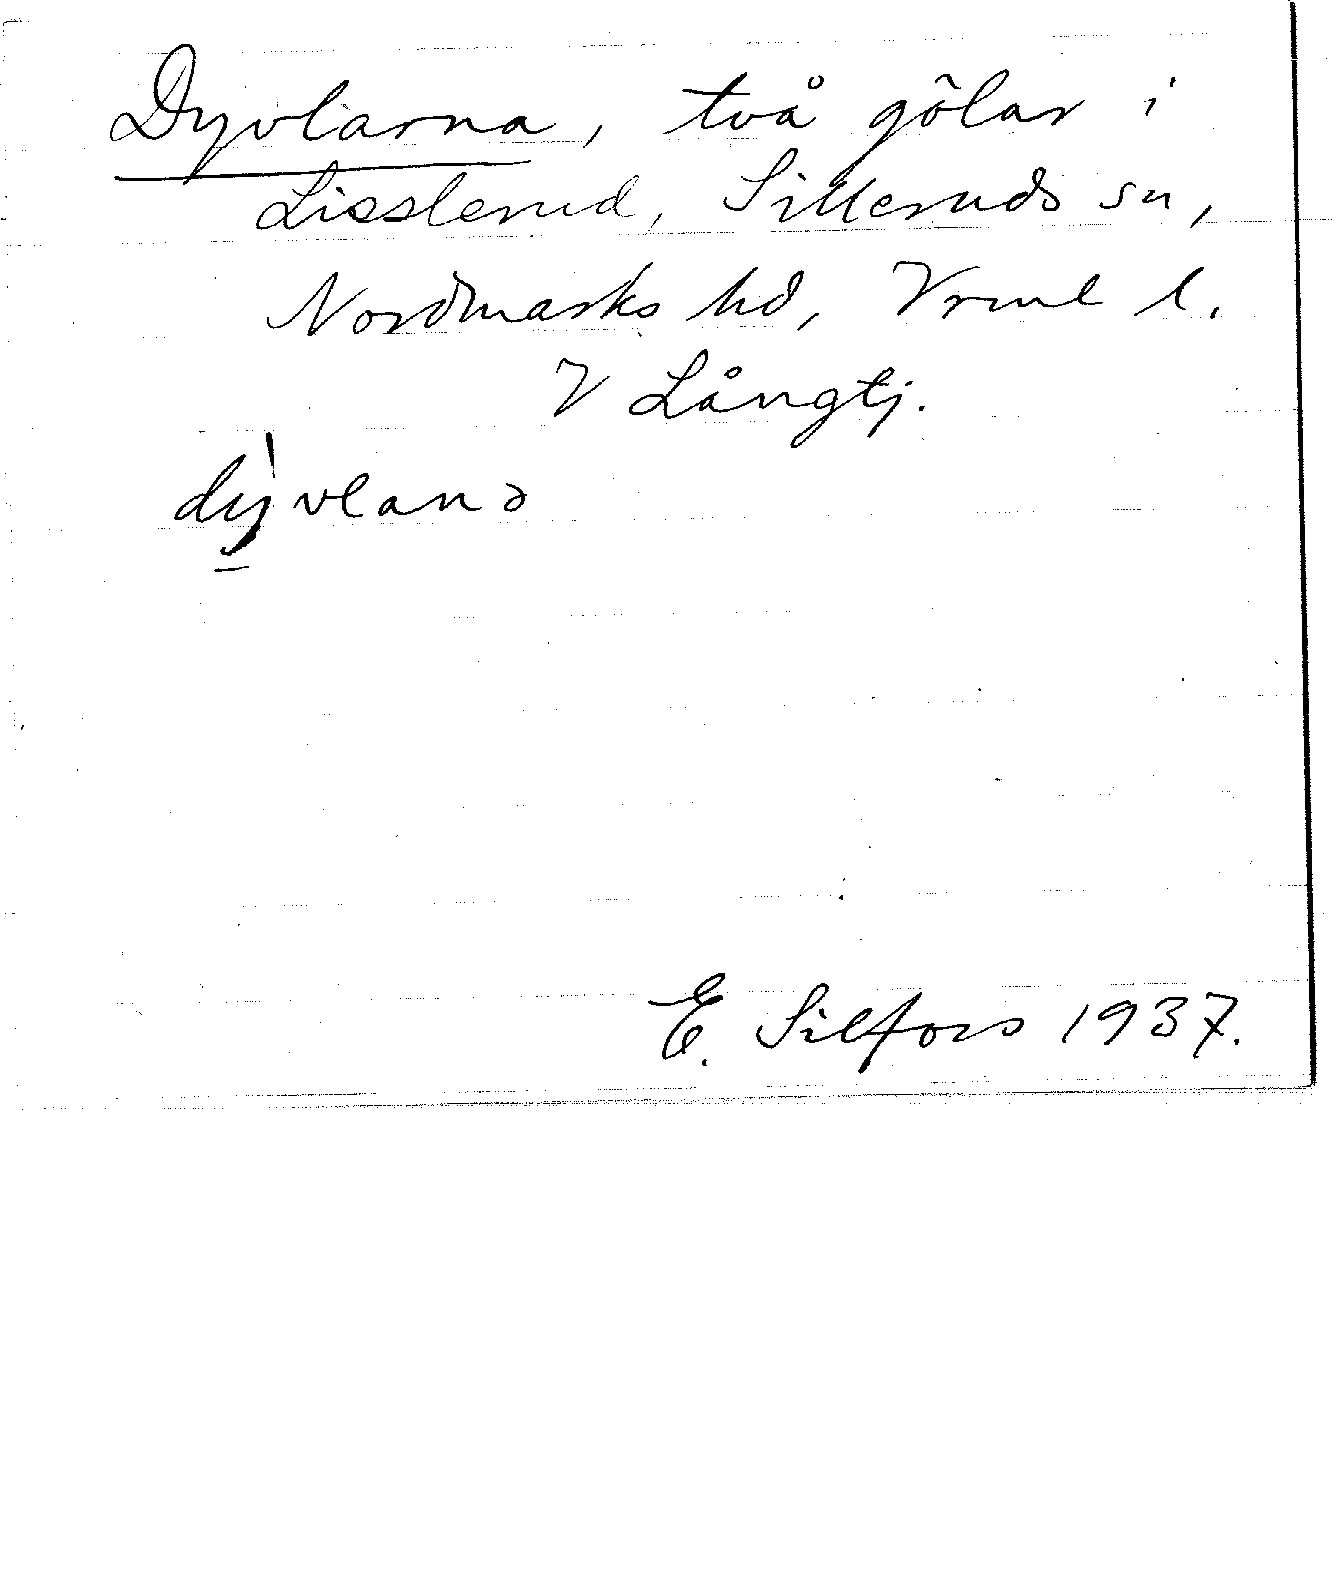 Dyvlarna, två gölar i
Lisslerud, Silleruds sn,
Nordmarks hd, Vrml l.
V Långtj.
dỳ̠vlanə
E. Silfors 1937.